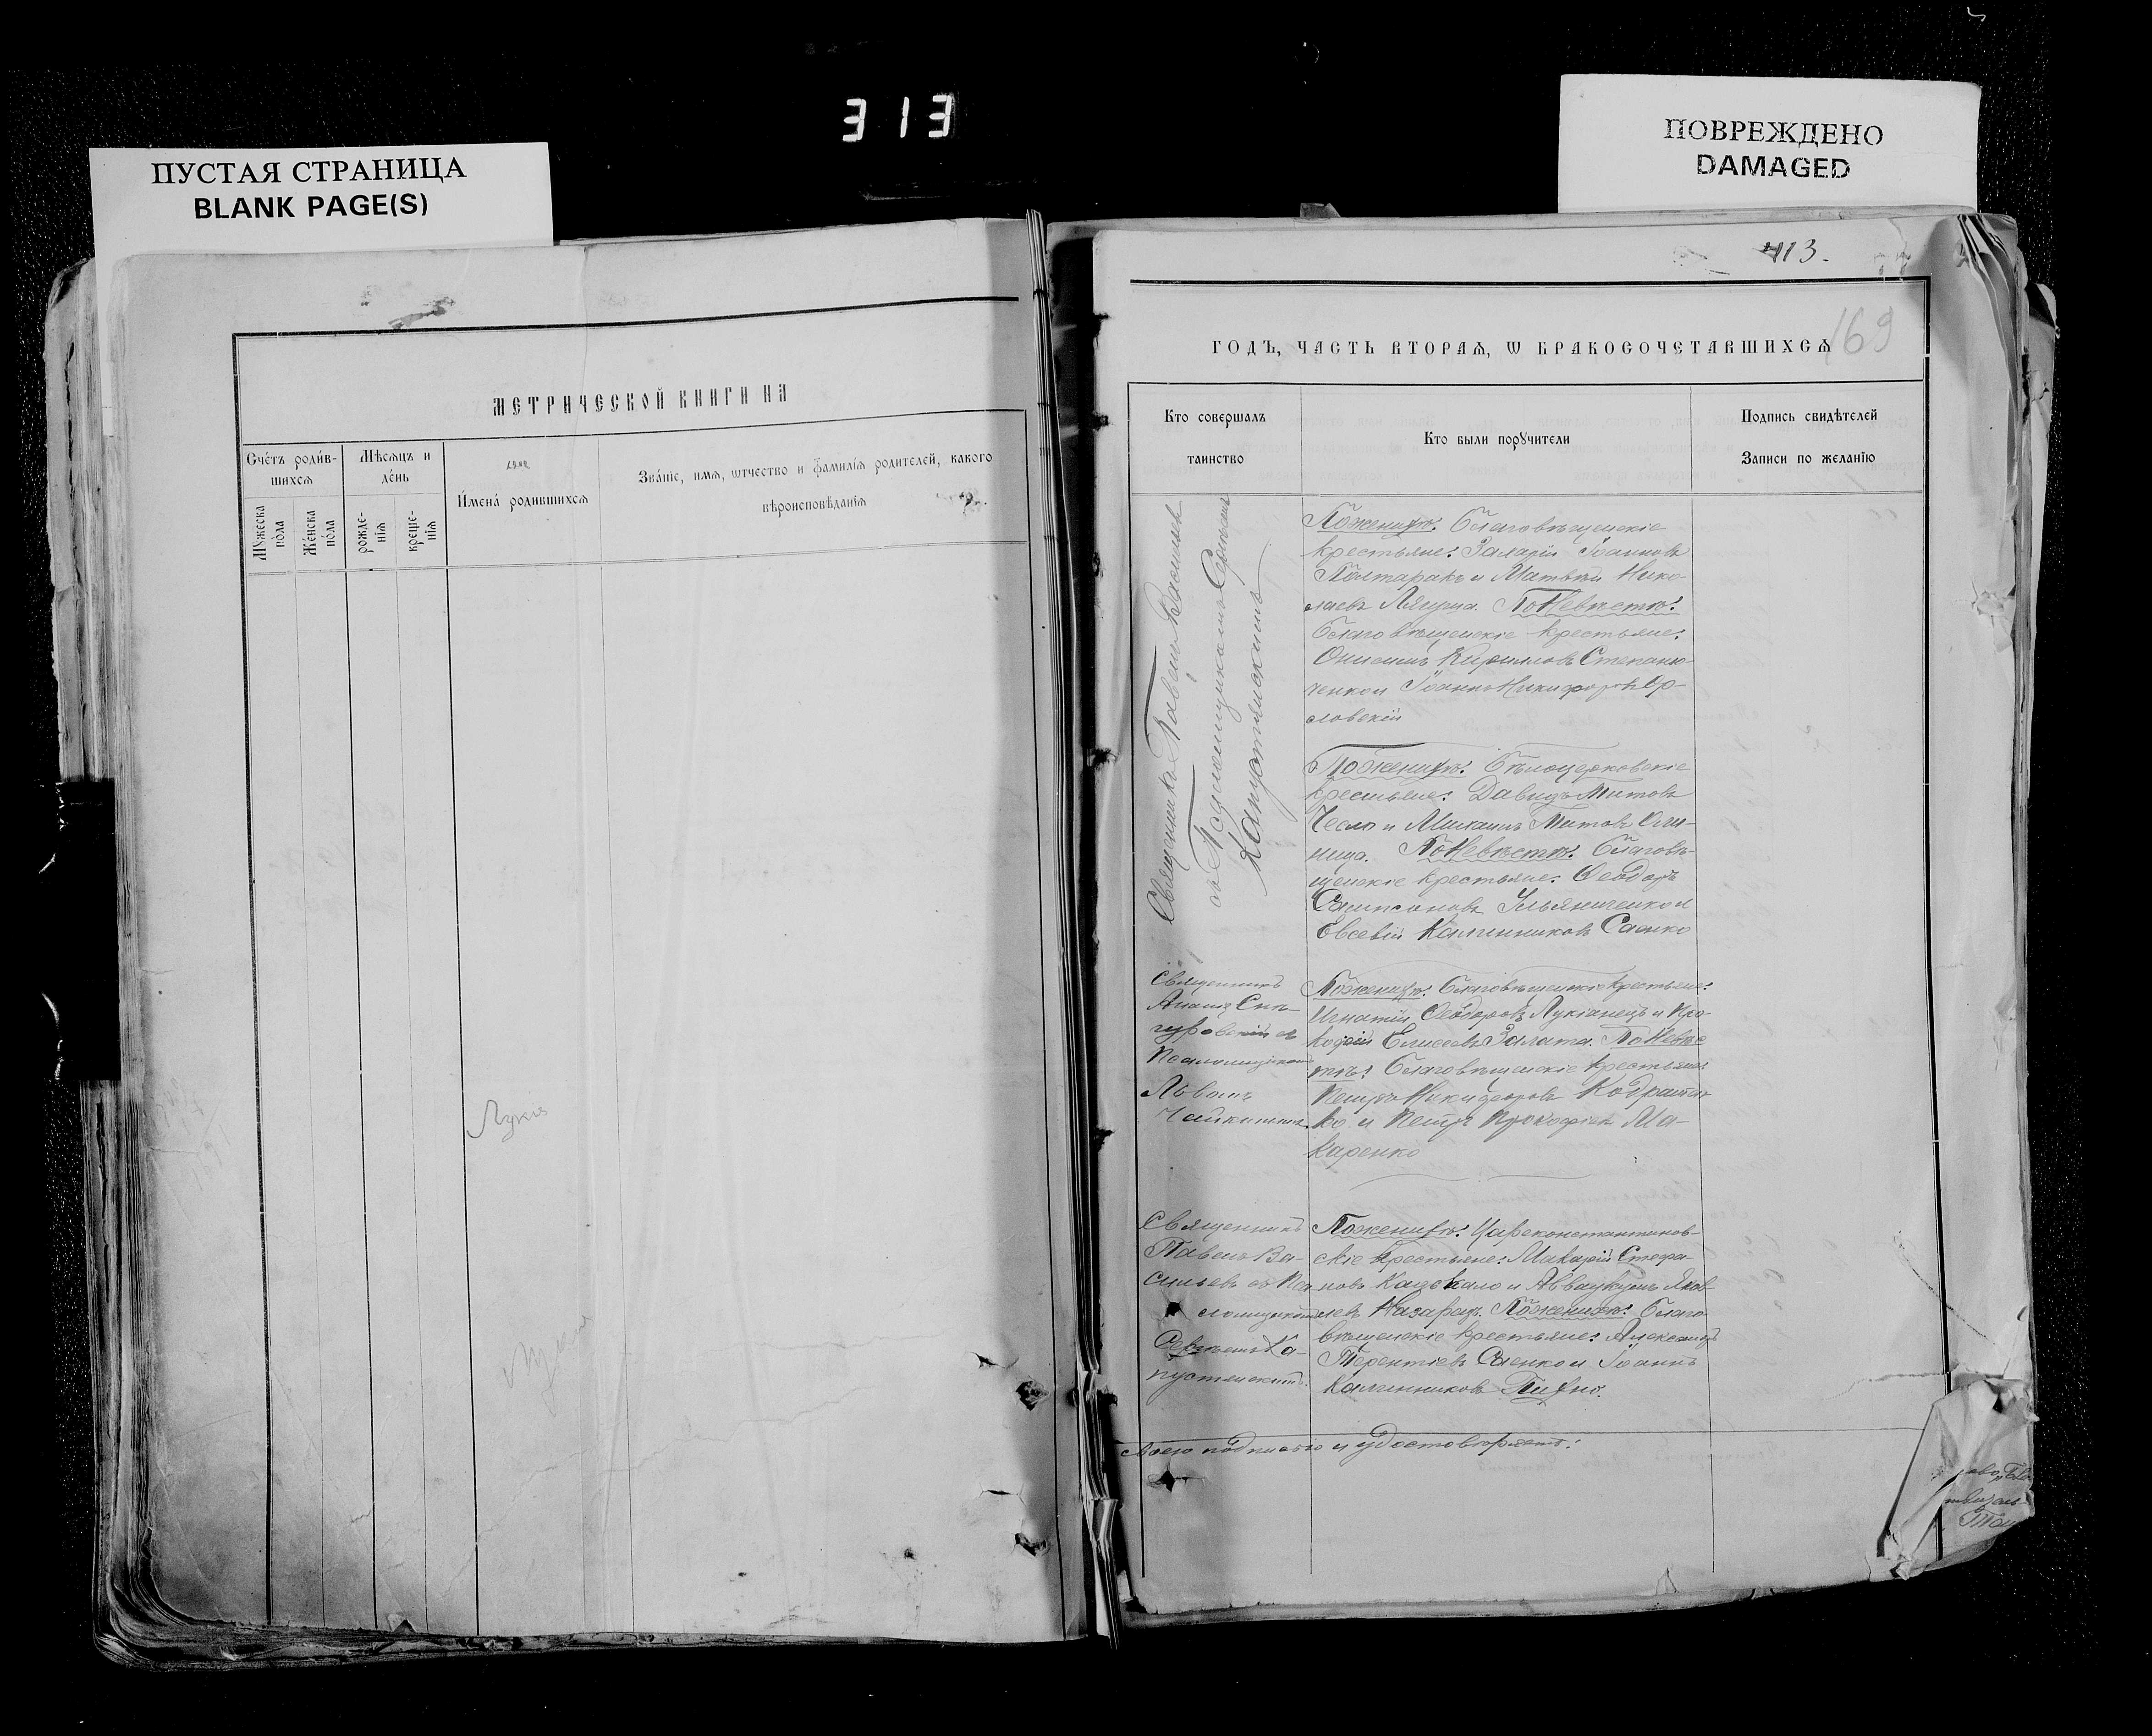 313
ПУСТАЯ СТРАНИЦА
BLANK PAGE(S)
ПОВРЕЖДЕНО
DAMAGED
МЕТРИЧЕСКОЙ КНИГИ НА
Счётъ роди́в-
шихсѧ
Мѣ́сѧцъ и
де́нь
Имена́ родившихсѧ
Зва́нїе, имѧ, ѿтчество и фамилїѧ родителей, какого
вѣроисповѣданїѧ
Мꙋжеска
по́ла
Же́нска
по́ла
рожде-
нїѧ
креще-
нїѧ
Лукія
113.
169
ГОДЪ, ЧАСТЬ ВТОРАѦ, Ѡ БРАКОСОЧЕТАВШИХСѦ
Кто совершалъ
таинство
Кто были порꙋчители
Подпись свидѣтелей
Записи по желанїю
Священникъ Павелъ Васильевъ
съ Псаломщикомъ
Капустянскимъ
По женихѣ: Благовѣщенскіе
крестьяне: Іоанновъ
Полтаракъ и Матвѣй Нико-
лаевъ Лягуша. По Невѣстѣ:
Благовѣщенскіе крестьяне:
Онисимъ Кирилловъ Степаню-
ченко и Іоаннъ Никифоровъ Ор-
ловскій
По женихѣ: Бѣлоцерковскіе
крестьяне: Давидъ Титовъ
Чесло и Михаилъ Титовъ Оли-
ница. По Невѣстѣ: Благовѣ-
щенскіе крестьяне: Ѳеодоръ
Сампсоновъ Ульянченко и
Евсевій Калинниковъ Саенко
Священникъ
съ
Псаломщикомъ
Львомъ
По женихѣ: Благовѣщенскіе крестьяне:
Игнатій Ѳеодоровъ Лукіанецъ и Про-
кофій Елисеевъ Залата. По Невѣс-
тѣ: Благовѣщенскіе крестьяне
Петръ Никифоровъ Кодратен-
ко и Петръ Прокофіевъ Ма-
каренко
Священникъ
Павелъ Ва-
сильевъ съ Пса-
ломщикомъ
Ка-
пустянскимъ.
По женихѣ: Цареконстантинов-
скіе крестьяне: Макарій Стефа-
новъ и Аввакумъ Яков-
левъ По женихѣ: Благо-
вѣщенскіе крестьяне: Александръ
Терентіевъ Саенко и Іоаннъ
Калинниковъ
своею подписью и удостовѣряетъ: